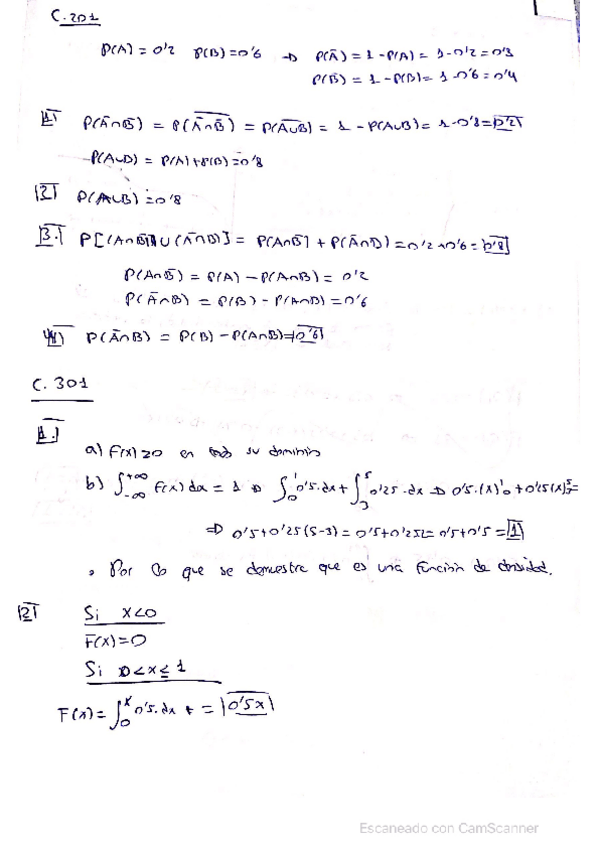 C.201
P(A) = 0'2 P(B) = 0'6 → P(Ā) = 1 - P(A) = 1 - 0'2 = 0'3
P(B̄) = 1 - P(B) = 1 - 0'6 = 0'4
1) P(Ā∩B̄) = P(Ā∩B̄) = P(A∪B) = 1 - P(A∪B) = 1 - 0'8 = 0'2
P(A∪B) = P(A) + P(B) = 0'8
2) P(A∪B) = 0'8
3. P[(A∩B̄)∪(Ā∩B)] = P(A∩B̄) + P(Ā∩B) = 0'2 + 0'6 = 0'8
P(A∩B̄) = P(A) - P(A∩B) = 0'2
P(Ā∩B) = P(B) - P(A∩B) = 0'6
4) P(Ā∩B) = P(B) - P(A∩B) = 0'6
C. 301
1.
a) F(x) ≥ 0 en todo su dominio
b) ∫-∞+∞ F(x) dx = 1 ⇒ ∫01 0'5·dx + ∫35 0'25·dx ⇒ 0'5·(x)10 + 0'25(x)53 =
⇒ 0'5 + 0'25(5-3) = 0'5 + 0'25·2 = 0'5 + 0'5 = 1
• Por lo que se demuestra que es una función de densidad.
2) Si x<0
F(x) = 0
Si 0<x≤1
F(x) = ∫0x 0'5·dx + = 0'5x
Escaneado con CamScanner